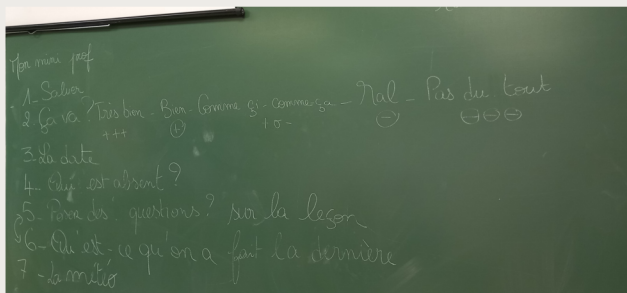 Mon mini prof
1- Saluer
2- Ça va? Très bien - Bien - Comme çi - comme ça - Mal - Pas du tout
+++ (+) + 0 - (-) (-)(-)(-)
3- La date
4- Qui est absent?
5- Poser des questions? sur la leçon
6- Qu'est-ce qu'on a fait la dernière
7- La météo